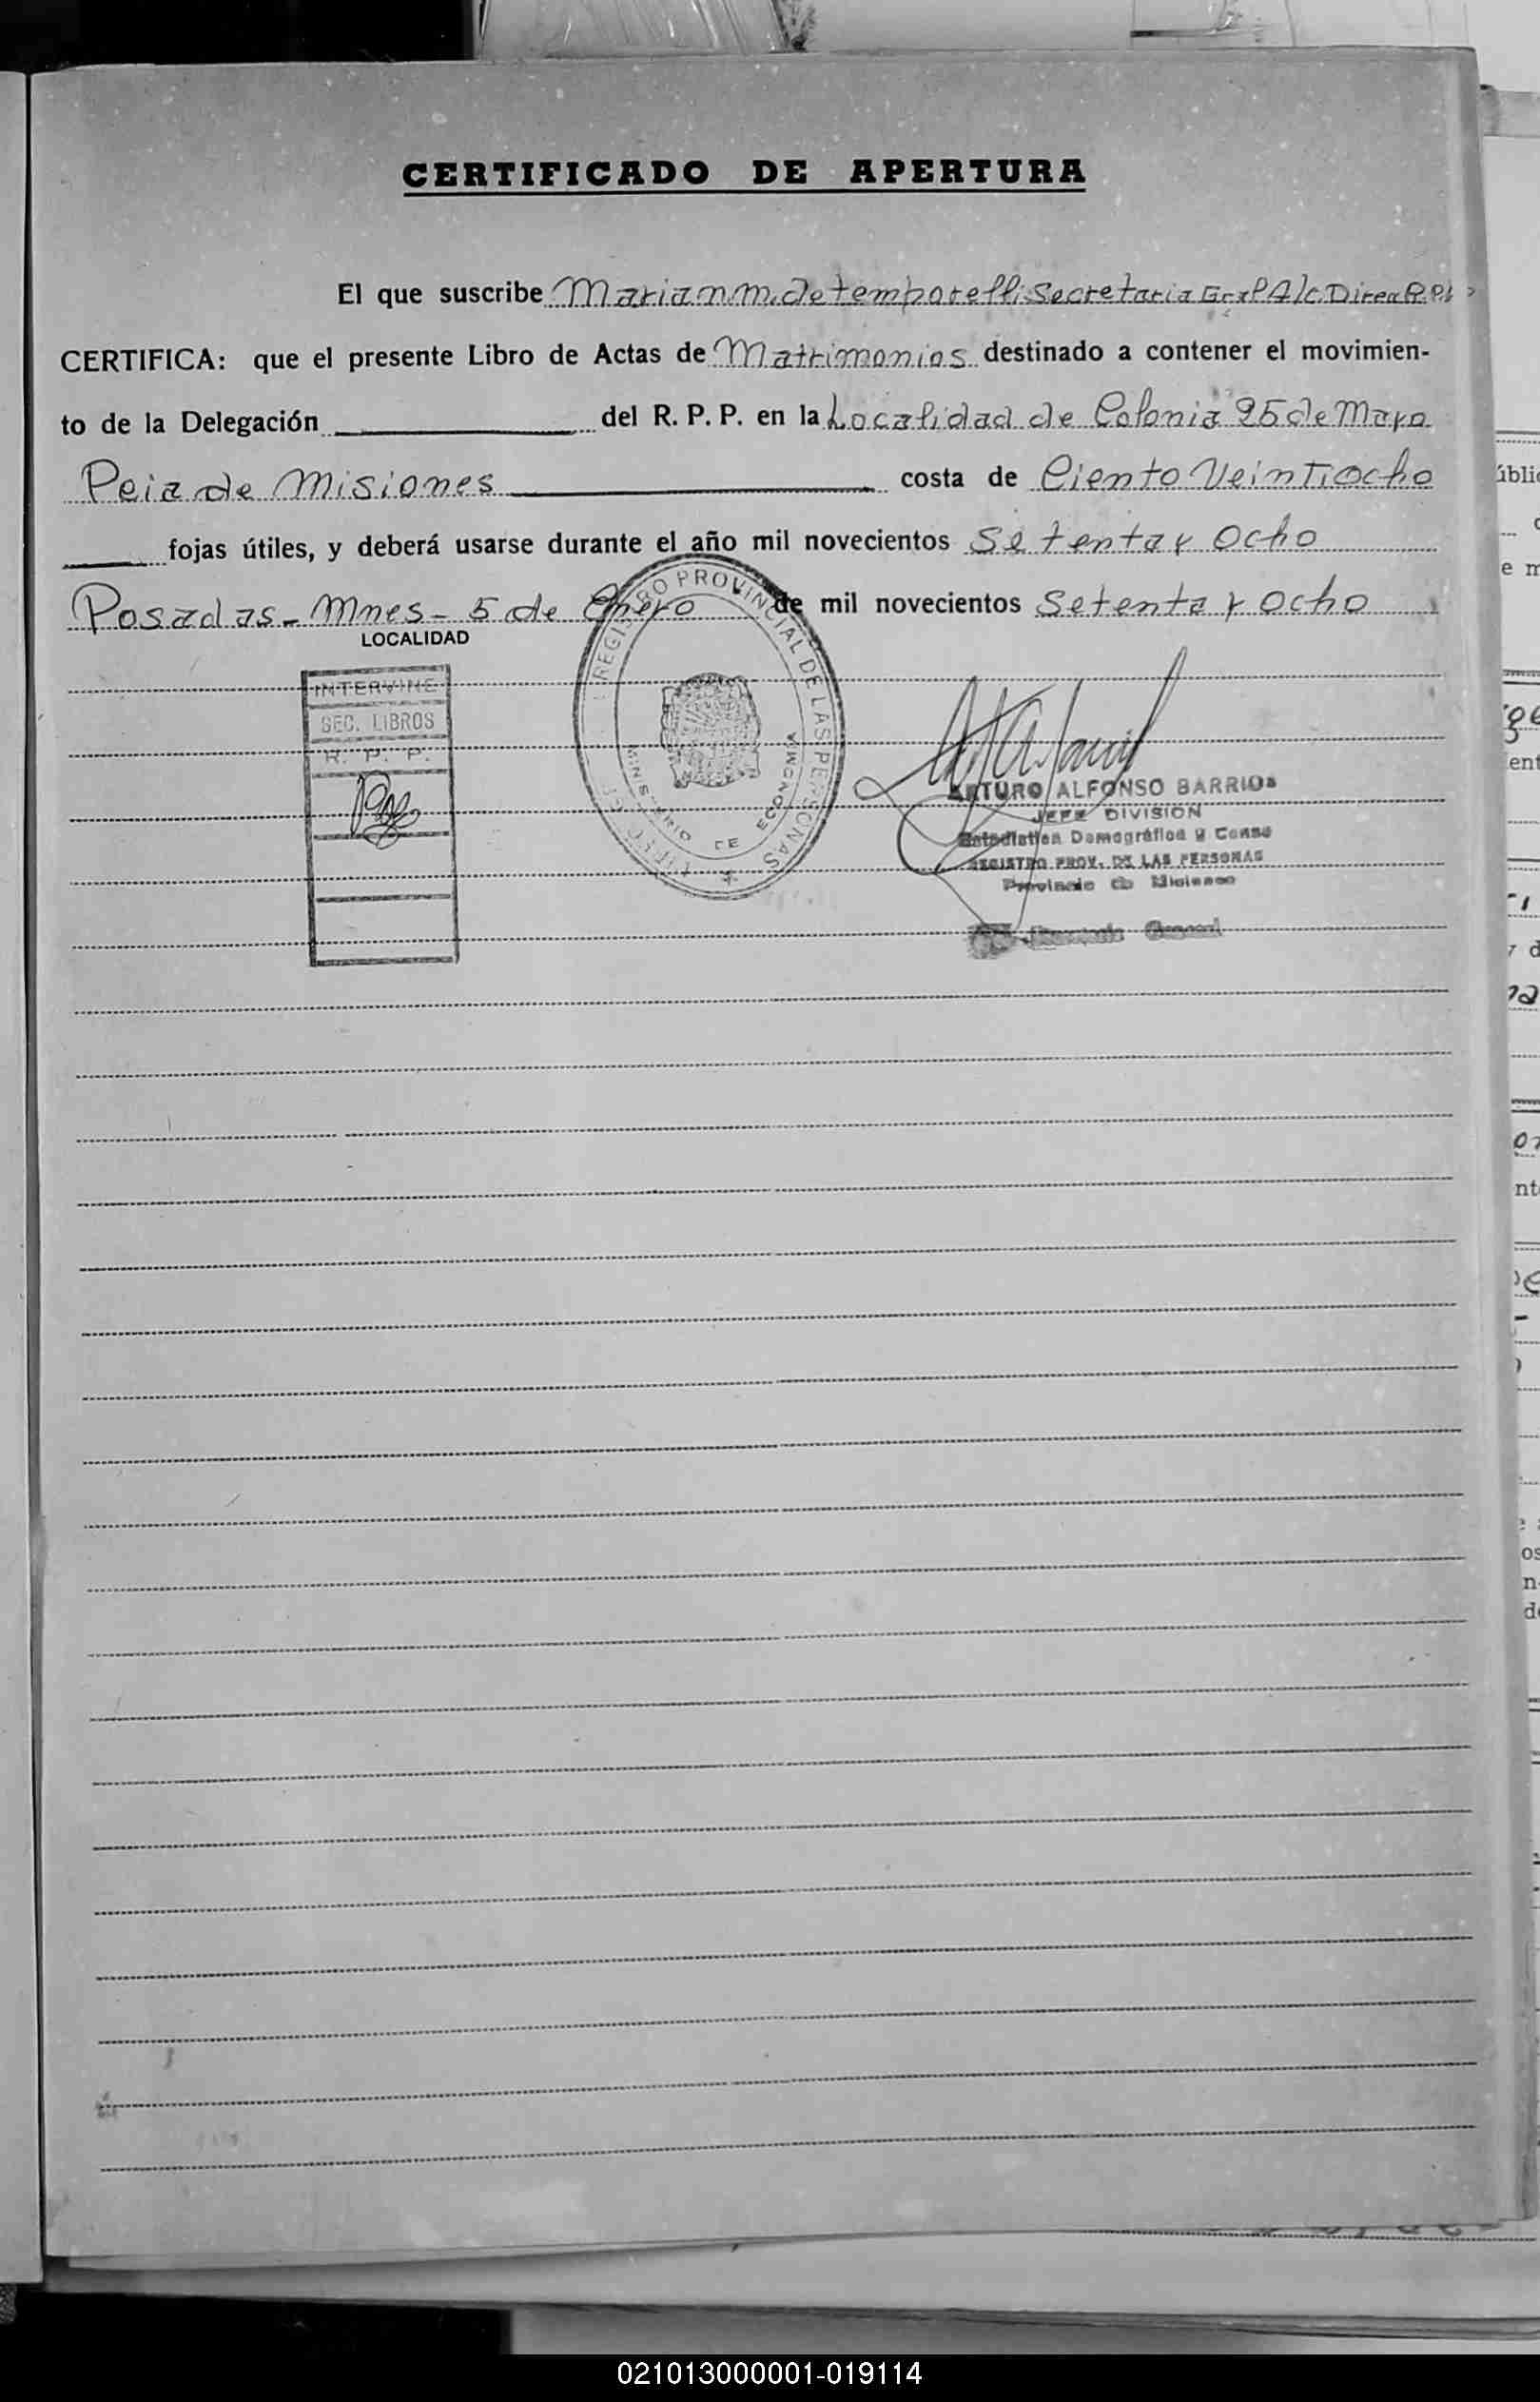 CERTIFICADO DE APERTURA
El que suscribe Maria m.m. de temporelli Secretaria Gral A/c. Direc R.P.P
CERTIFICA: que el presente Libro de Actas de Matrimonios destinado a contener el movimien-
to de la Delegación del R. P. P. en la Localidad de Colonia 25 de Mayo
Pcia de Misiones costa de Ciento Veintiocho
fojas útiles, y deberá usarse durante el año mil novecientos Setenta y Ocho
Posadas - Mnes - 5 de Enero de mil novecientos Setenta y Ocho
LOCALIDAD
INTERVINE
SEC. LIBROS
R. P. P.
REGISTRO PROVINCIAL DE LAS PERSONAS
MINISTERIO DE ECONOMIA
ARTURO ALFONSO BARRIOS
JEFE DIVISION
Estadistica Demográfica y Censo
REGISTRO PROV. DE LAS PERSONAS
Provincia de Misiones
General
021013000001-019114